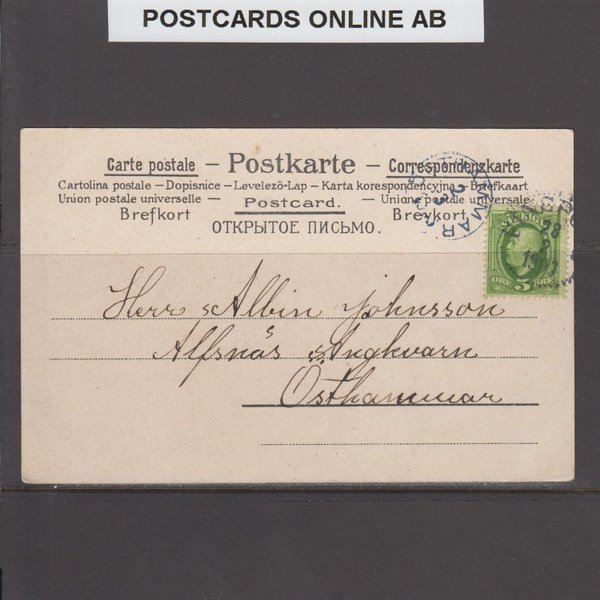 POSTCARDS ONLINE AB
Carte postale – Postkarte – Correspondenzkarte
Cartolina postale – Dopisnice – Levelező-Lap – Karta korespondencyjna – Briefkaart
Union postale universelle – Postcard. – Union postale universelle
Brefkort Brevkort
ОТКРЫТОЕ ПИСЬМО.
Herr Albin Johnsson
Alfsnäs Ångkvarn
Östhammar
ÖRE 5 ÖRE